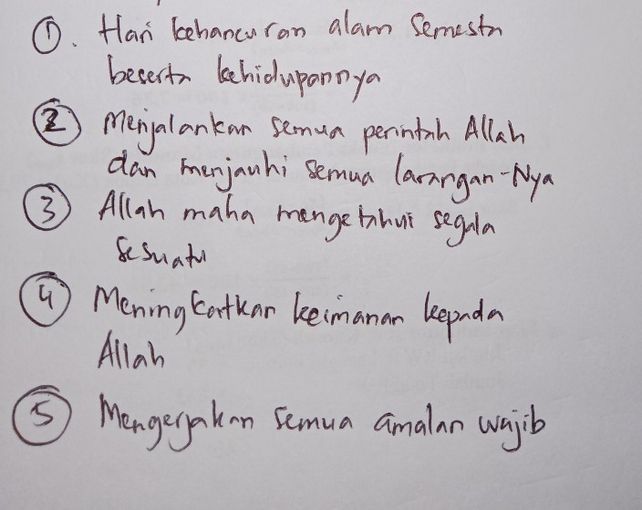 1. Hari kehancuran alam semesta
beserta kehidupannya
2 Menjalankan semua perintah Allah
dan menjauhi semua larangan-Nya
3 Allah maha mengetahui segala
sesuatu
4 Meningkatkan keimanan kepada
Allah
5 Mengerjakan semua amalan wajib